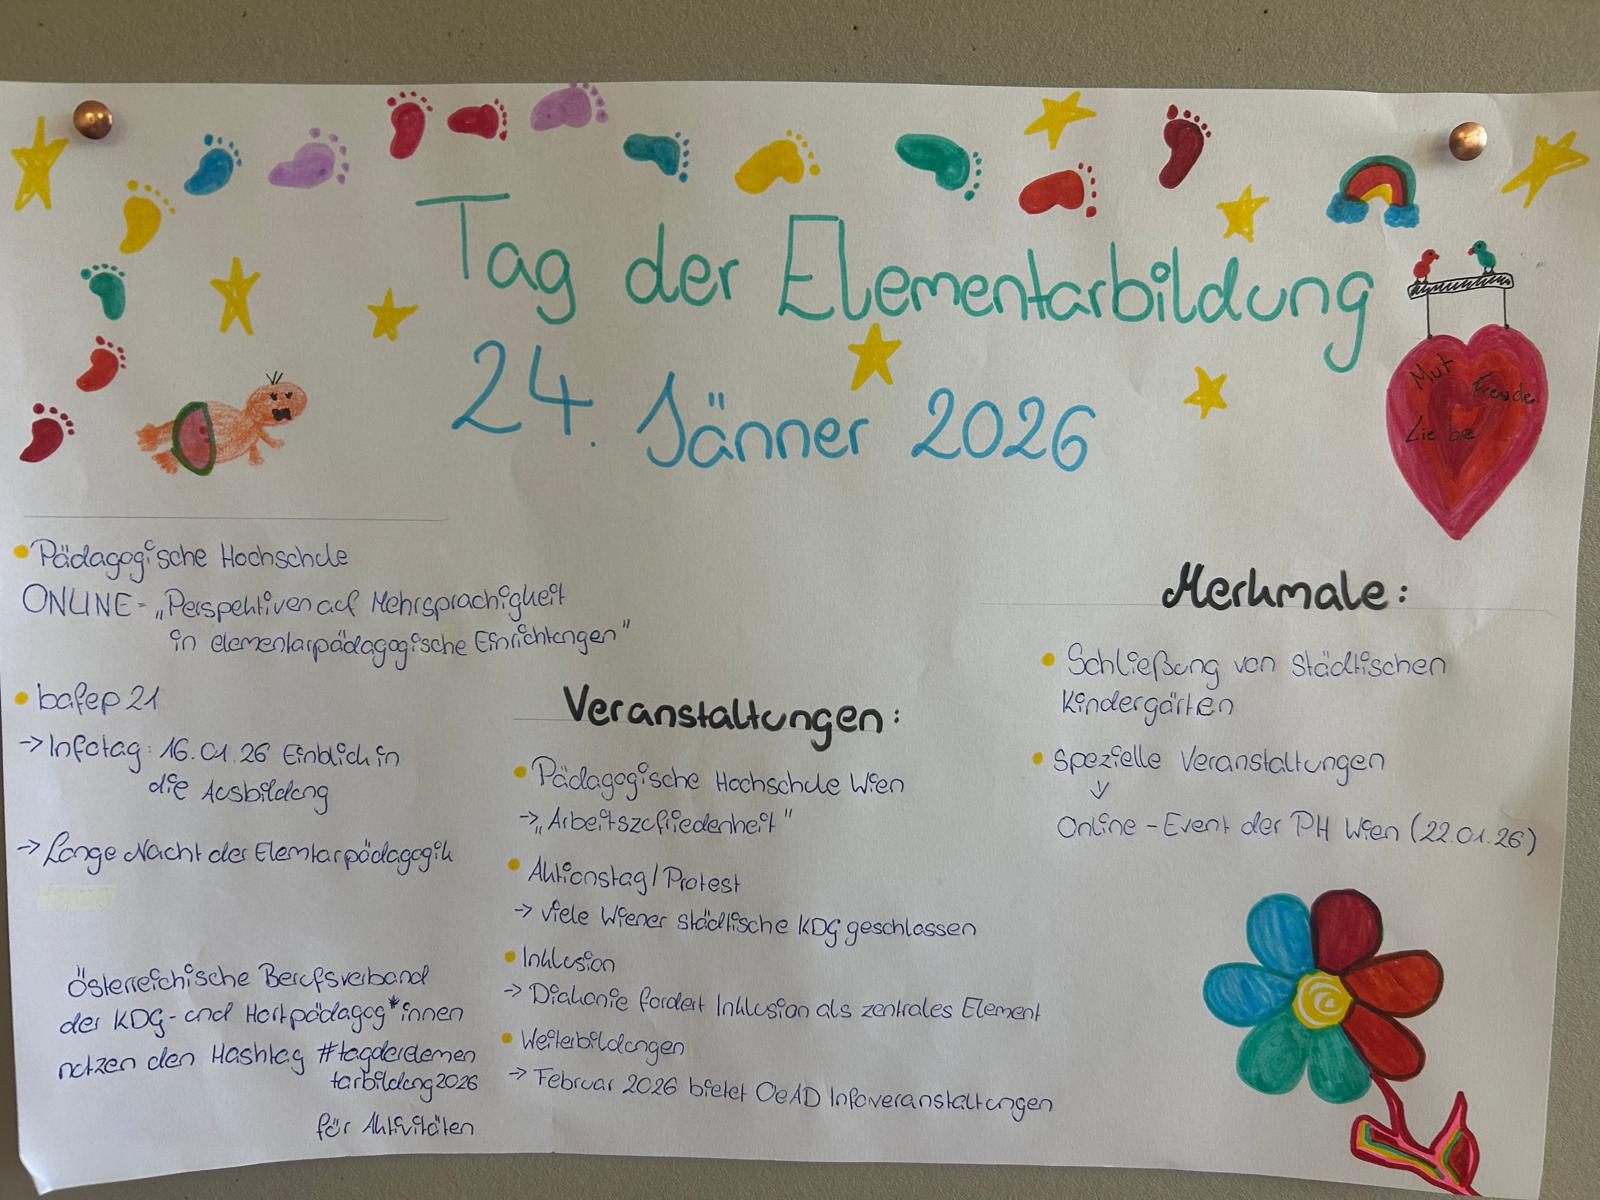 Tag der Elementarbildung
24. Jänner 2026
Mut
Freude
Liebe
• Pädagogische Hochschule
ONLINE - „Perspektiven auf Mehrsprachigkeit
in elementarpädagogische Einrichtungen"
• bafep 21
-> Infotag: 16.01.26 Einblick in
die Ausbildung
-> Lange Nacht der Elemtarpädagogik
Österreichische Berufsverband
der KDG- und Hortpädagog*innen
nutzen den Hashtag #tagderelemen
tarbildung2026
für Aktivitäten
Veranstaltungen:
• Pädagogische Hochschule Wien
-> „Arbeitszufriedenheit"
• Aktionstag/Protest
-> viele Wiener städtische KDG geschlossen
• Inklusion
-> Diakonie fordert Inklusion als zentrales Element
• Weiterbildungen
-> Februar 2026 bietet OeAD Infoveranstaltungen
Merkmale:
• Schließung von städtischen
Kindergärten
• spezielle Veranstaltungen
Online - Event der PH Wien (22.01.26)